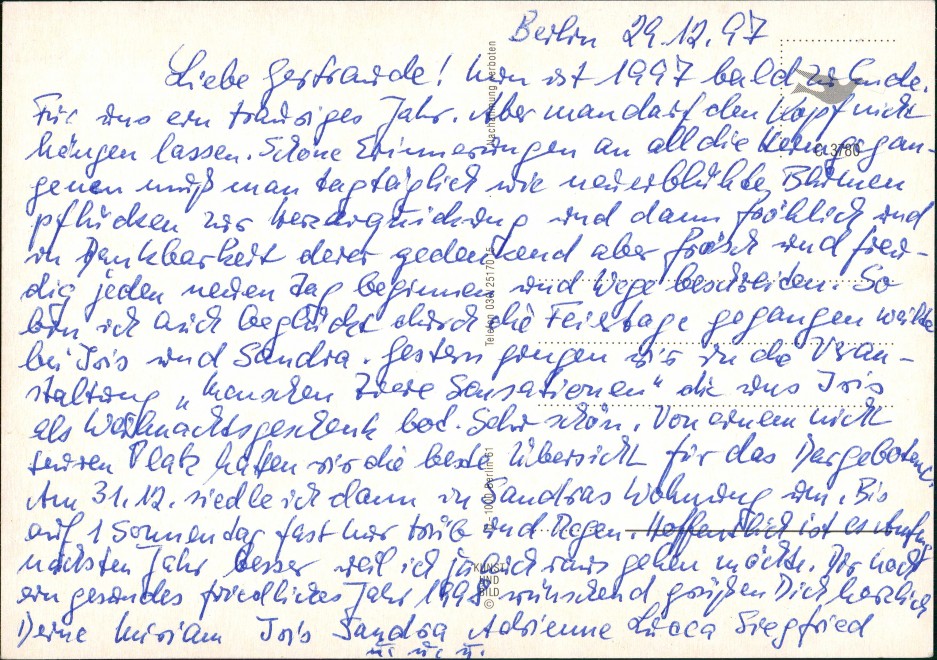 Berlin 29.12.97
Liebe Gertraude! Nun ist 1997 bald zu Ende.
Für uns ein trauriges Jahr. Aber man darf den Kopf nicht
hängen lassen. Schöne Erinnerungen an all die Heimgegan-
genen muß man tagtäglich wie neuerblühte Blumen
pflücken zur Herzerquickung und dann fröhlich und
in Dankbarkeit derer gedenkend aber frisch und freu-
dig jeden neuen Tag beginnen und Wege beschreiten. So
bin ich auch beglückt durch die Feiertage gegangen weilte
bei Iris und Sandra. Gestern gingen wir in die Veran-
staltung "Menschen Tiere Sensationen" die uns Iris
als Weihnachtsgeschenk bot. Sehr schön. Von einem nicht
teuren Platz hatten wir die beste Übersicht für das Dargebotene.
Am 31.12. siedle ich dann in Sandras Wohnung um. Bis
auf 1 Sonnentag fast nur trüb und Regen. Hoffentlich ist es Anfang
nächsten Jahr besser weil ich ja auch raus gehen möchte. Dir noch
ein gesundes friedliches Jahr 1998 wünschend grüßen Dich herzlich
Deine Miriam Iris Sandra Adrienne Lucca Siegfried
u. u. u.
Nachahmung verboten
CL3780
Telefon 030/2517015
1000 Berlin 61
KUNST
UND
BILD
©